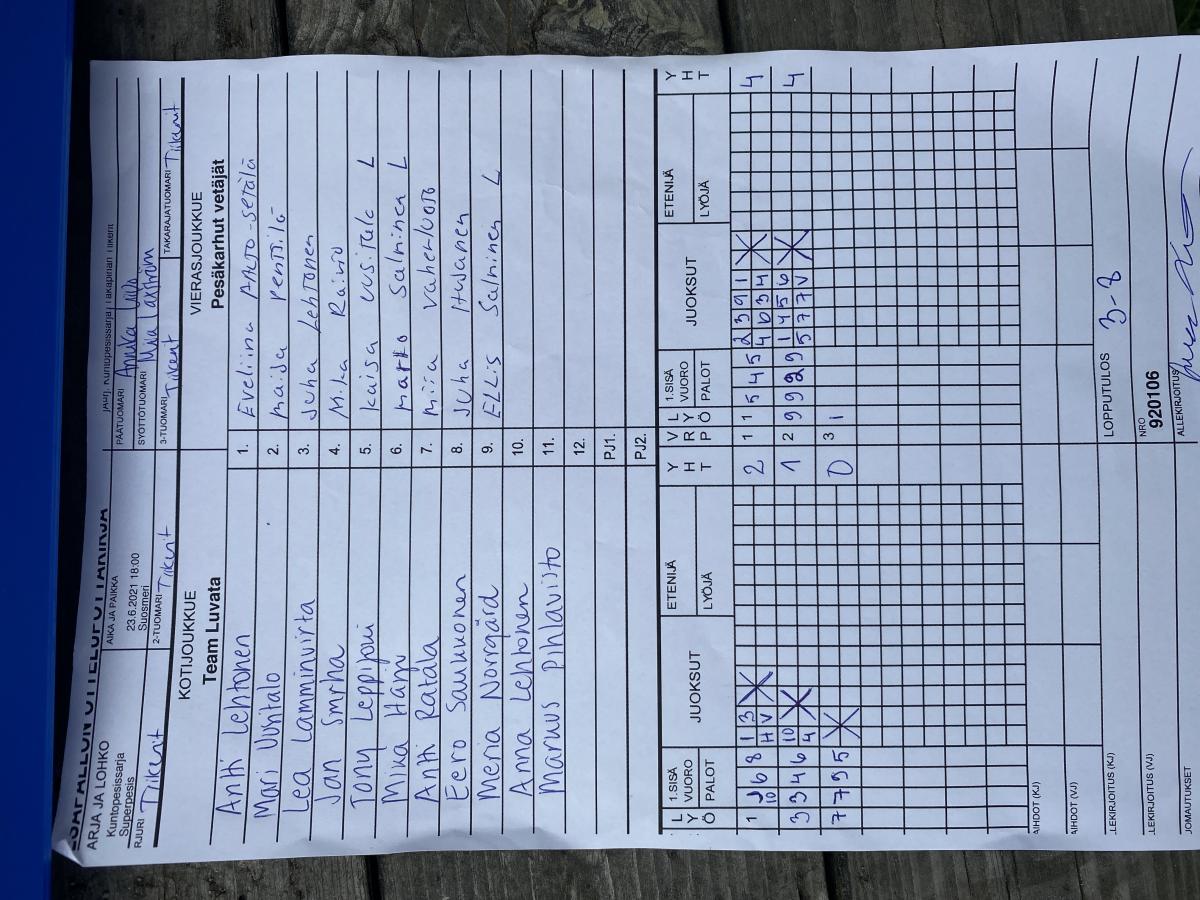 ARJA JA LOHKO
Kuntopesissarja
Superpesis
AIKA JA PAIKKA
23.6.2021 18:00
Suosmeri
PÄÄTUOMARI Annika
SYÖTTÖTUOMARI
RJURI Tiikerit
2-TUOMARI Tiikerit
3-TUOMARI Tiikerit
TAKARAJATUOMARI Tiikerit
KOTIJOUKKUE
Team Luvata
VIERASJOUKKUE
Pesäkarhut vetäjät
Antti Lehtonen 1. Eveliina Aalto-Setälä
Mari Uusitalo 2. Maija Penttilä
Lea Lamminvirta 3. Juha Lehtonen
Jan Smrha 4. Mika Rainio
Tony Leppipoui 5. Kaisa Uusitalo L
Mika Härju 6. Marko Salminen L
Antti Ratala 7. Miia Vahenluoto
Eero Saukkonen 8. Juha
Meria Norrgård 9. ELLiS Salminen L
Anna Lehtonen 10.
Markus Pihlavisto 11.
12.
PJ1.
PJ2.
L Y Ö 1.SISÄ VUORO PALOT JUOKSUT ETENIJÄ LYÖJÄ Y H T V R P L Y Ö 1.SISÄ VUORO PALOT JUOKSUT ETENIJÄ LYÖJÄ Y H T
1 6 8 1 3 2 1 1 5 4 5 2 3 9 1 4
10 H V 4 6 3 4
3 3 4 6 10 1 2 9 9 2 9 1 4 5 6 4
4 5 7 7 V
7 7 9 5 0 3 1
AIHDOT (KJ)
AIHDOT (VJ)
LEKIRJOITUS (KJ) LOPPUTULOS 3-8
LEKIRJOITUS (VJ) NRO 920106
JOMAUTUKSET ALLEKIRJOITUS